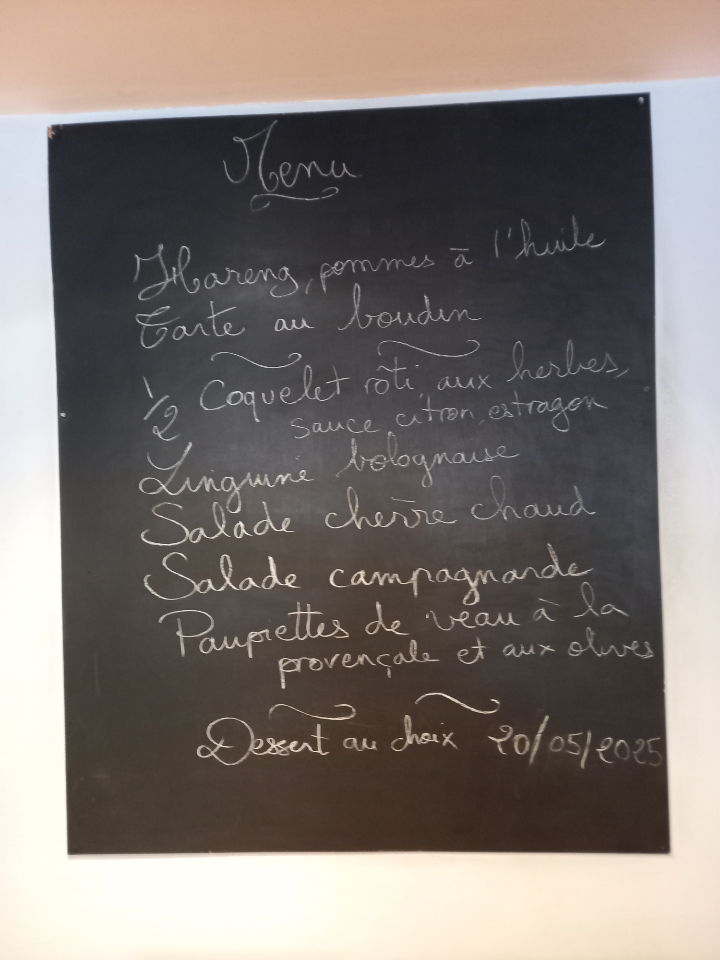 Menu
Hareng, pommes à l'huile
Tarte au boudin
1/2 Coquelet rôti aux herbes,
sauce citron, estragon
Linguine bolognaise
Salade chèvre chaud
Salade campagnarde
Paupiettes de veau à la
provençale et aux olives
Dessert au choix 20/05/2025